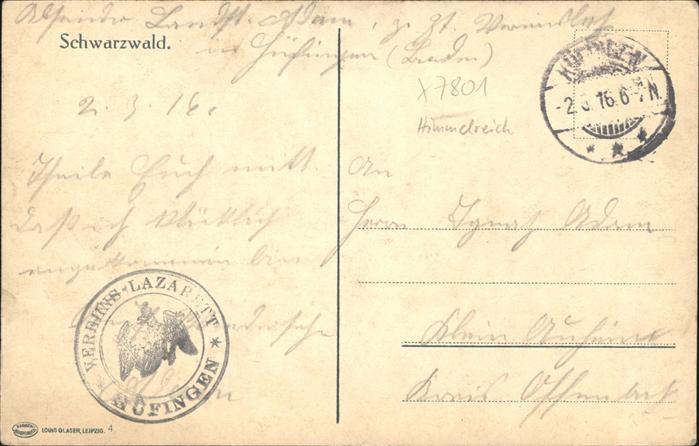 Absender Landst. Adam, z. Zt. Vereinslaz
Schwarzwald.
in Hüfingen (Baden)
2.3.16.
Theile Euch mitt.
daß ich Glücklich
angekommen bin
VEREINS-LAZARETT
* HÜFINGEN *
LOUIS GLASER, LEIPZIG. 4
HÜFINGEN
-2.3.16.6-7N.
X7801
Himmelreich
An
Herrn Ignaz Adam
Klein Auheim
Kreis Offenbach